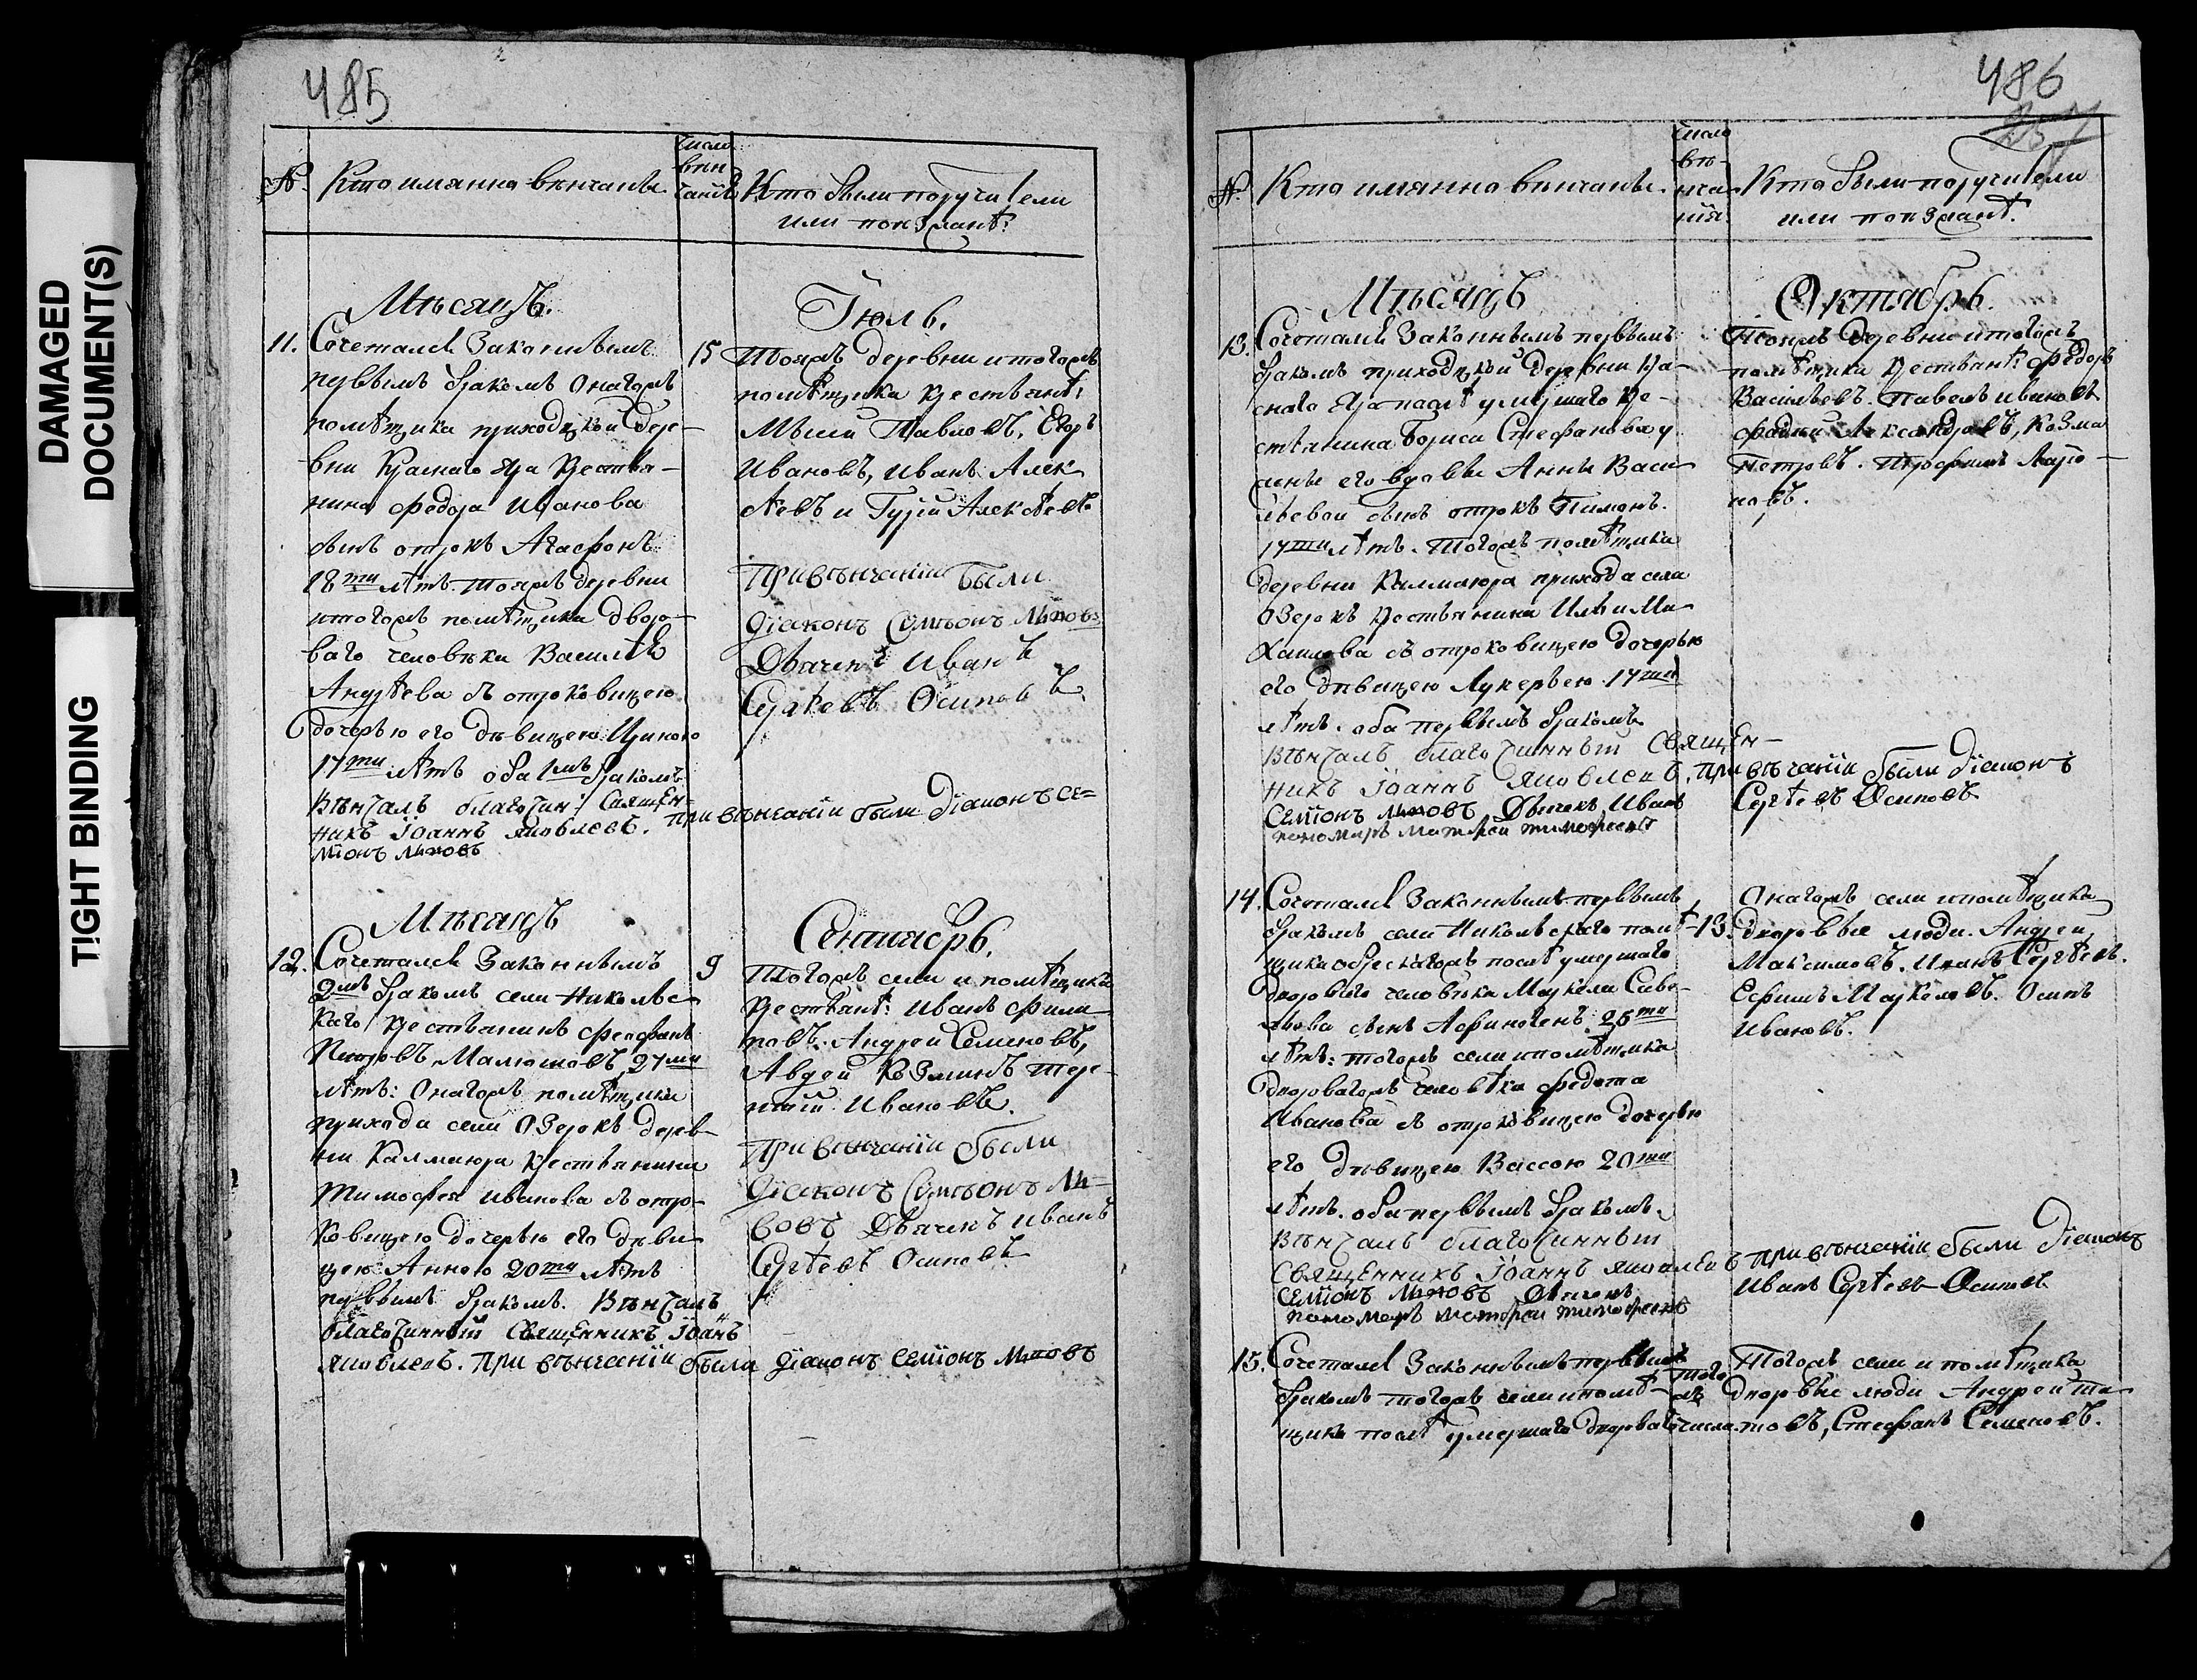 DAMAGED
DOCUMENT(S)
TIGHT BINDING
485
№
Кто имянно венчаны
Число
вен
чанія
Кто были поручители
или поезжанѣ:
Мѣсяцъ.
Іюль.
11. Сочетался Законнымъ
первымъ бракомъ онагожъ
помѣщика приходской дере-
вни Краснаго Яра крестья-
нина Федора Иванова
сынъ отрокъ Агафонъ
18ти лѣтъ. тояжъ деревни
итогожъ помѣщика дворо-
ваго человѣка Василья
Андрѣева съ отроковицею
дочерью его дѣвицею Ириною
17ти лѣтъ оба 1мъ бракомъ
Вѣнчалъ благочин: Священ-
никъ Іоаннъ Яковлевъ. При вѣнчаніи были Діаконъ Се=
міонъ
15
Тояжъ деревни итогожъ
помѣщика крестьянѣ:
Павловъ, Егоръ
Ивановъ, Иванъ Алек
сѣевъ и Гурій Алексѣевъ
При вѣнчаніи были
Діаконъ Сѵмѣонъ
Дьячекъ Иванъ
Сергѣевъ Осиповъ
Мѣсяцъ
Сентябрь.
12. Сочетался Законнымъ
2мъ бракомъ села Никольс-
каго крестьянинъ Феофанъ
Петровъ Малюшовъ, 27ми
лѣтъ: Онагожъ помѣщика
прихода села Озерокъ дерев-
ни Калмаюра крестьянина
Тимофея Иванова съ отро-
ковицею дочерью его дѣви
цею Анною 20ти лѣтъ
первымъ бракомъ. Вѣнчалъ
благочинный Священникъ Іоанъ
Яковлевъ. При вѣнчаніи были Діаконъ Семіонъ
9
Тогожъ села и помѣщика
крестьянѣ: Иванъ Фили
повъ. Андрей Семеновъ,
Авдей Козминъ Тере-
нтій Ивановъ.
При вѣнчаніи были
Діаконъ Сѵмѣонъ
Дьячекъ Иванъ
Сергѣевъ Осиповъ
486
№
Кто имянно венчаны.
Число
вѣ-
нча-
нія
Кто были поручители
или поезжанѣ.
Мѣсяцъ
Октябрь.
13. Сочетался Законнымъ первымъ
бракомъ приходской деревни Кра-
снаго Яра послѣ умершаго кре-
стьянина Бориса Стефанова у
жены его вдовы Анны Васи
льевой сынъ отрокъ Пимонъ.
17ти лѣтъ. Тогожъ помѣщика
деревни Калмаюра прихода села
Озерокъ крестьянина Ильи Ми
хаилова съ отроковицею дочерью
его дѣвицею Лукерьею 17ти
лѣтъ. оба первымъ бракомъ
Вѣнчалъ благочинный Священ-
никъ Іоаннъ Яковлевъ. При вѣнчаніи были Діаконъ
Семіонъ Дьячекъ Иванъ Сергѣевъ Осиповъ
пономарь Матфей Тимофеевъ
Тояжъ деревни итогожъ
помѣщика крестьянѣ: Федоръ
Васильевъ. Павелъ Ивановъ
Александровъ, Козма
Петровъ. Трофимъ Ларіо-
новъ.
14. Сочетался Законнымъ первымъ
бракомъ села Никольскаго помѣ-
щика послѣ умершаго
двороваго человѣка Маркела Саве-
льева сынъ Афиногенъ 25ти
лѣтъ: тогожъ села ипомѣщика
двороваго человѣка Федота
Иванова съ отроковицею дочерью
его дѣвицею Вассою 20ти
лѣтъ. оба первымъ бракомъ.
Вѣнчалъ благочинный
Священникъ Іоаннъ Яковлевъ При вѣнчаніи были Діаконъ
Семіонъ Дьячекъ Иванъ Сергѣевъ Осиповъ
пономарь Матфей Тимофеевъ
13.
Онагожъ села ипомѣщика
дворовые люди. Андрей
Максимовъ. Иванъ Сергѣевъ.
Ефимъ Маркеловъ. Осипъ
Ивановъ.
15. Сочетался Законнымъ первымъ
бракомъ тогожъ села ипомѣ-
щика послѣ умершаго двороваго
того
жъ
числа
Тогожъ села и помѣщика
дворовые люди Андрей
Стефанъ Семеновъ.